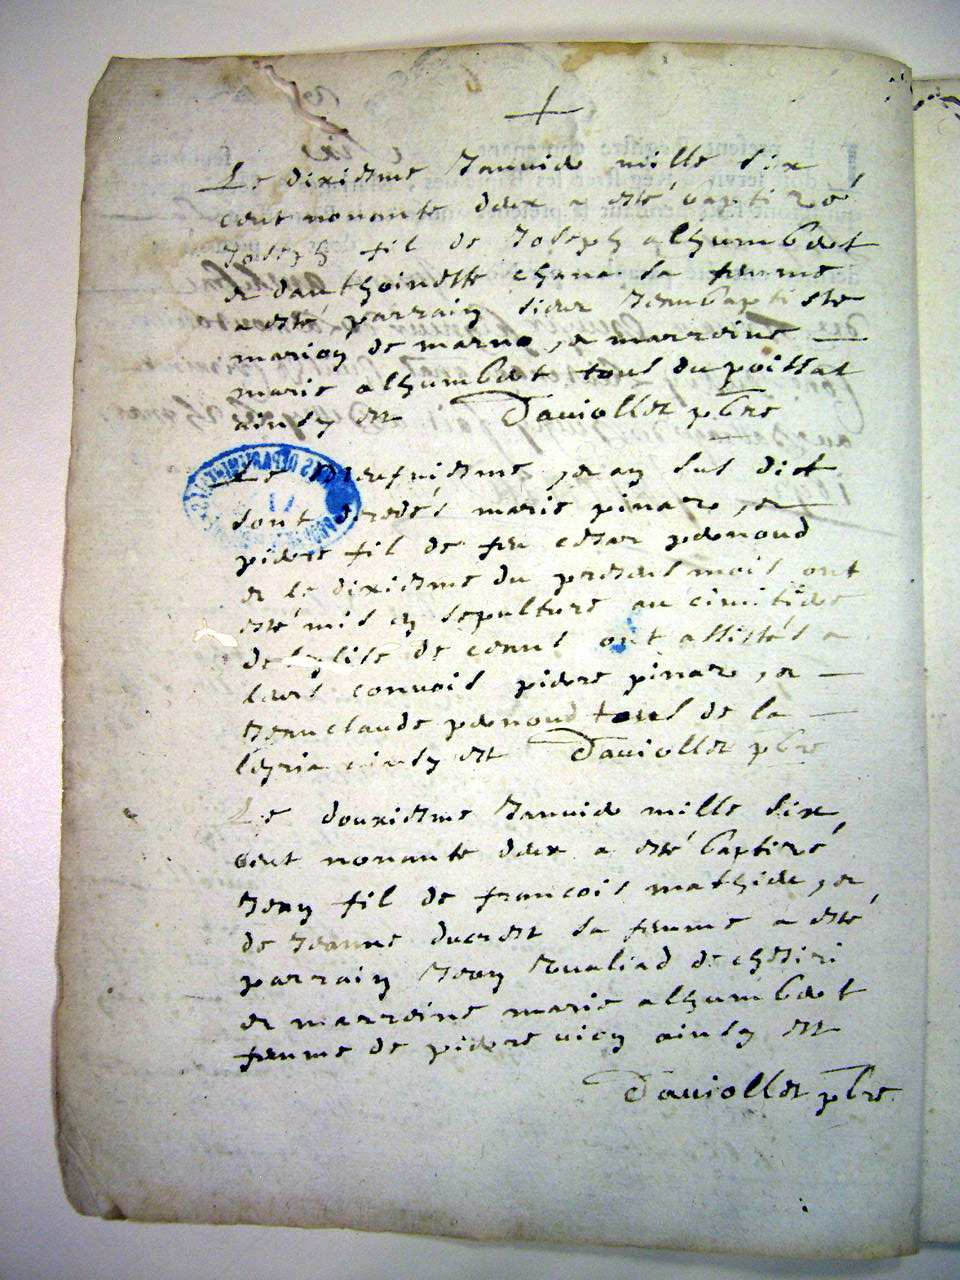 Le dixieme Januier mille six
cent nonante deux a esté baptizé
Joseph fil de Joseph alhumbert
et danthoinette chana sa femme
a esté parrain sieur Jeanbaptiste
marion de marno, et marreine
marie alhumbert tous du poissat
ainsy est Dauiollet pbre
Le neufuieme, et an sus dict
sont decedés marie pinar, et
pierre fil de feu cesar pernoud
et le dixieme du present mois ont
esté mis en sepulture au cimitiere
de leglise de ont assistés a
leurs conuois pierre pinar, et
Jeanclaude pernoud tous de la
leyria ainsy est Dauiollet pbre
Le douxieme Januier mille six
cent nonante deux a esté baptizé
Jean fil de francois mathieu, et
de Jeanne ducret sa femme a esté
parrain Jean de
et marreine marie alhumbert
femme de pierre ainsy est
Dauiollet pbre